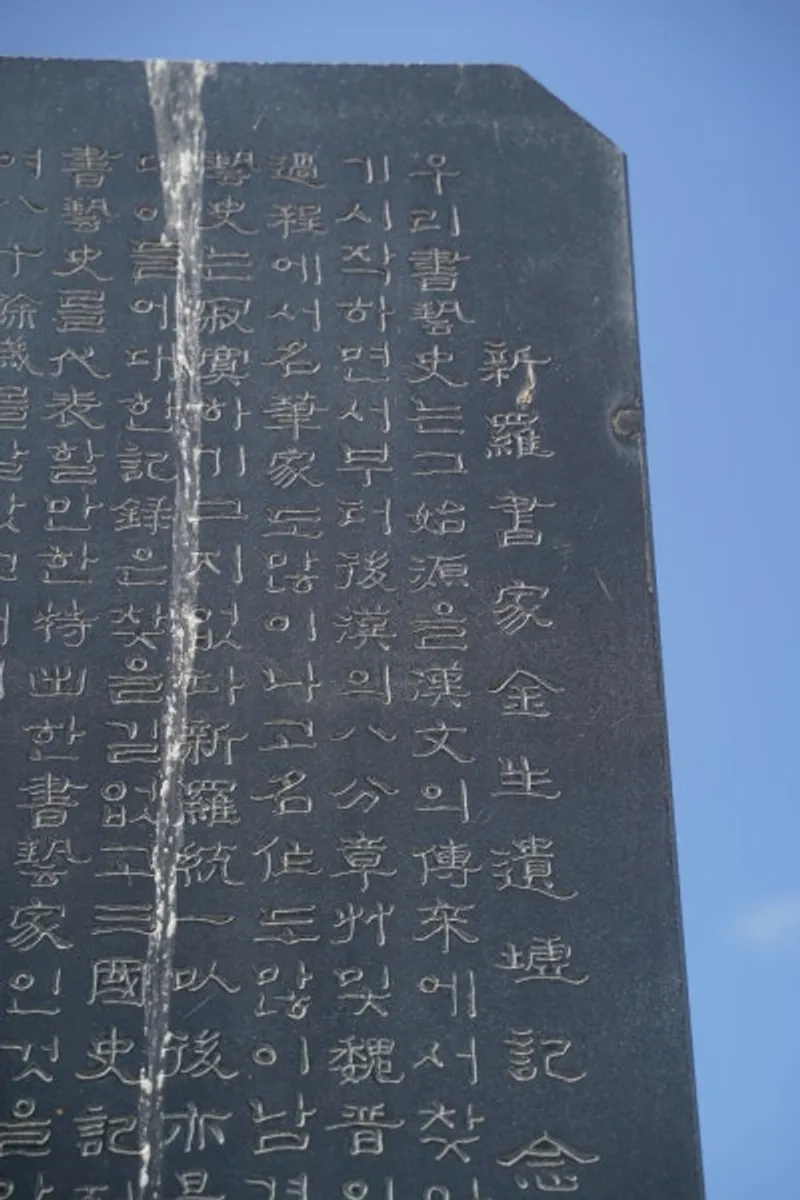 新羅書家金生遺墟記念
우리書藝史는그始源을漢文의傳来에서찾
기시작하면서부터後漢의八分章艸및魏晋의
過程에서名筆家도많이나고名作도많이남
藝史는寂寞하기그지없다新羅統一以後亦是
이들에대한記録은찾을길없고三國史記
書藝史를代表할만한特出한書藝家인것을
여八十餘歲를살았고